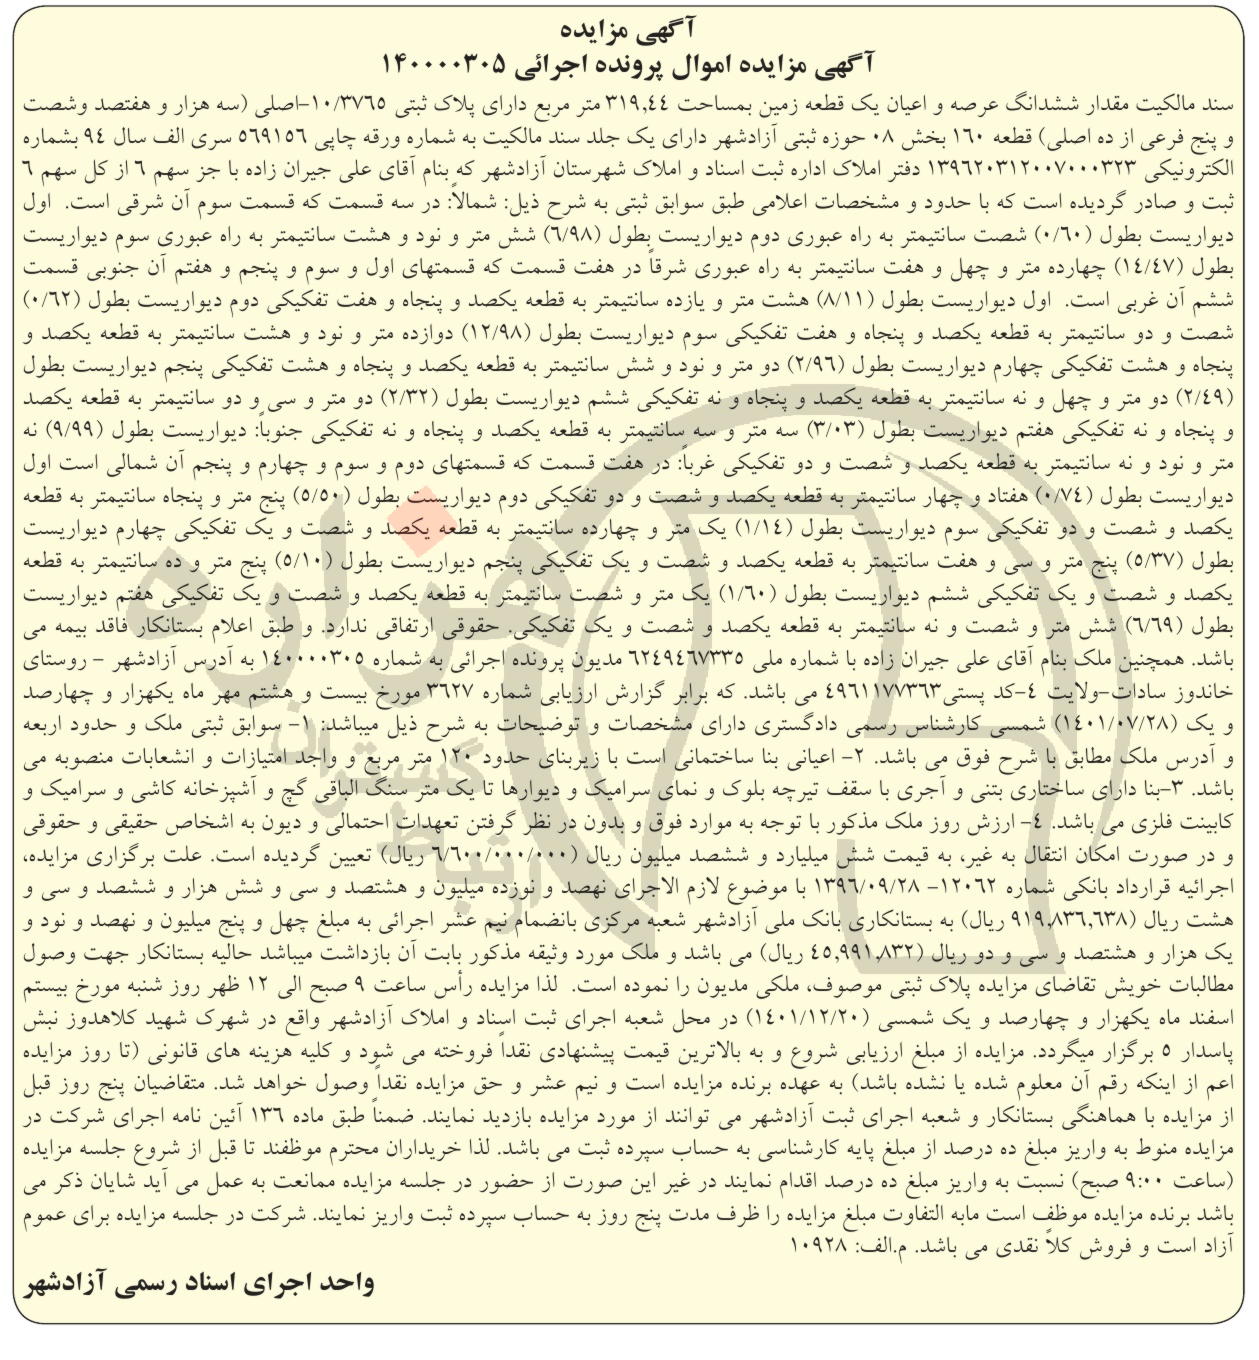 آگهی مزایده
آگهی مزایده اموال پرونده اجرائی ۱۴۰۰۰۰۳۰۵
سند مالکیت مقدار ششدانگ عرصه و اعیان یک قطعه زمین بمساحت ۳۱۹,٤٤ متر مربع دارای پلاک ثبتی ۱۰/۳۷٦٥-اصلی (سه هزار و هفتصد وشصت
و پنج فرعی از ده اصلی) قطعه ۱۶۰ بخش ۰۸ حوزه ثبتی آزادشهر دارای یک جلد سند مالکیت به شماره ورقه چاپی ٥٦۹۱٥٦ سری الف سال ۹٤ بشماره
الکترونیکی ۱۳۹٦۲۰۳۱۲۰۰۷۰۰۰۳۲۳ دفتر املاک اداره ثبت اسناد و املاک شهرستان آزادشهر که بنام آقای علی جیران زاده با جز سهم ٦ از کل سهم ٦
ثبت و صادر گردیده است که با حدود و مشخصات اعلامی طبق سوابق ثبتی به شرح ذیل: شمالاً: در سه قسمت که قسمت سوم آن شرقی است. اول
دیواریست بطول (۰/٦۰) شصت سانتیمتر به راه عبوری دوم دیواریست بطول (٦/۹۸) شش متر و نود و هشت سانتیمتر به راه عبوری سوم دیواریست
بطول (۱٤/٤۷) چهارده متر و چهل و هفت سانتیمتر به راه عبوری شرقاً در هفت قسمت که قسمتهای اول و سوم و پنجم و هفتم آن جنوبی قسمت
ششم آن غربی است. اول دیواریست بطول (۸/۱۱) هشت متر و یازده سانتیمتر به قطعه یکصد و پنجاه و هفت تفکیکی دوم دیواریست بطول (۰/٦۲)
شصت و دو سانتیمتر به قطعه یکصد و پنجاه و هفت تفکیکی سوم دیواریست بطول (۱۲/۹۸) دوازده متر و نود و هشت سانتیمتر به قطعه یکصد و
پنجاه و هشت تفکیکی چهارم دیواریست بطول (۲/۹٦) دو متر و نود و شش سانتیمتر به قطعه یکصد و پنجاه و هشت تفکیکی پنجم دیواریست بطول
(۲/٤۹) دو متر و چهل و نه سانتیمتر به قطعه یکصد و پنجاه و نه تفکیکی ششم دیواریست بطول (۲/۳۲) دو متر و سی و دو سانتیمتر به قطعه یکصد
و پنجاه و نه تفکیکی هفتم دیواریست بطول (۳/۰۳) سه متر و سه سانتیمتر به قطعه یکصد و پنجاه و نه تفکیکی جنوباً: دیواریست بطول (۹/۹۹) نه
متر و نود و نه سانتیمتر به قطعه یکصد و شصت و دو تفکیکی غرباً: در هفت قسمت که قسمتهای دوم و سوم و چهارم و پنجم آن شمالی است اول
دیواریست بطول (۰/۷٤) هفتاد و چهار سانتیمتر به قطعه یکصد و شصت و دو تفکیکی دوم دیواریست بطول (٥/٥۰) پنج متر و پنجاه سانتیمتر به قطعه
یکصد و شصت و دو تفکیکی سوم دیواریست بطول (۱/۱٤) یک متر و چهارده سانتیمتر به قطعه یکصد و شصت و یک تفکیکی چهارم دیواریست
بطول (٥/۳۷) پنج متر و سی و هفت سانتیمتر به قطعه یکصد و شصت و یک تفکیکی پنجم دیواریست بطول (٥/۱۰) پنج متر و ده سانتیمتر به قطعه
یکصد و شصت و یک تفکیکی ششم دیواریست بطول (۱/٦۰) یک متر و شصت سانتیمتر به قطعه یکصد و شصت و یک تفکیکی هفتم دیواریست
بطول (٦/٦۹) شش متر و شصت و نه سانتیمتر به قطعه یکصد و شصت و یک تفکیکی. حقوقی ارتفاقی ندارد. و طبق اعلام بستانکار فاقد بیمه می
باشد. همچنین ملک بنام آقای علی جیران زاده با شماره ملی ٦۲٤۹٤٦۷۳۳٥ مدیون پرونده اجرائی به شماره ۱٤۰۰۰۰۳۰٥ به آدرس آزادشهر - روستای
خاندوز سادات-ولایت ٤-کد پستی٤۹٦۱۱۷۷۳٦۳ می باشد. که برابر گزارش ارزیابی شماره ۳٦۲۷ مورخ بیست و هشتم مهر ماه یکهزار و چهارصد
و یک (۱٤۰۱/۰۷/۲۸) شمسی کارشناس رسمی دادگستری دارای مشخصات و توضیحات به شرح ذیل میباشد: ۱- سوابق ثبتی ملک و حدود اربعه
و آدرس ملک مطابق با شرح فوق می باشد. ۲- اعیانی بنا ساختمانی است با زیربنای حدود ۱۲۰ متر مربع و واجد امتیازات و انشعابات منصوبه می
باشد. ۳-بنا دارای ساختاری بتنی و آجری با سقف تیرچه بلوک و نمای سرامیک و دیوارها تا یک متر سنگ الباقی گچ و آشپزخانه کاشی و سرامیک و
کابینت فلزی می باشد. ٤- ارزش روز ملک مذکور با توجه به موارد فوق و بدون در نظر گرفتن تعهدات احتمالی و دیون به اشخاص حقیقی و حقوقی
و در صورت امکان انتقال به غیر، به قیمت شش میلیارد و ششصد میلیون ریال (٦/٦۰۰/۰۰۰/۰۰۰ ریال) تعیین گردیده است. علت برگزاری مزایده،
اجرائیه قرارداد بانکی شماره ۱۲۰٦۲- ۱۳۹٦/۰۹/۲۸ با موضوع لازم الاجرای نهصد و نوزده میلیون و هشتصد و سی و شش هزار و ششصد و سی و
هشت ریال (۹۱۹,۸۳٦,٦۳۸ ریال) به بستانکاری بانک ملی آزادشهر شعبه مرکزی بانضمام نیم عشر اجرائی به مبلغ چهل و پنج میلیون و نهصد و نود و
یک هزار و هشتصد و سی و دو ریال (٤٥,۹۹۱,۸۳۲ ریال) می باشد و ملک مورد وثیقه مذکور بابت آن بازداشت میباشد حالیه بستانکار جهت وصول
مطالبات خویش تقاضای مزایده پلاک ثبتی موصوف، ملکی مدیون را نموده است. لذا مزایده رأس ساعت ۹ صبح الی ۱۲ ظهر روز شنبه مورخ بیستم
اسفند ماه یکهزار و چهارصد و یک شمسی (۱٤۰۱/۱۲/۲۰) در محل شعبه اجرای ثبت اسناد و املاک آزادشهر واقع در شهرک شهید کلاهدوز نبش
پاسدار ٥ برگزار میگردد. مزایده از مبلغ ارزیابی شروع و به بالاترین قیمت پیشنهادی نقداً فروخته می شود و کلیه هزینه های قانونی (تا روز مزایده
اعم از اینکه رقم آن معلوم شده یا نشده باشد) به عهده برنده مزایده است و نیم عشر و حق مزایده نقداً وصول خواهد شد. متقاضیان پنج روز قبل
از مزایده با هماهنگی بستانکار و شعبه اجرای ثبت آزادشهر می توانند از مورد مزایده بازدید نمایند. ضمناً طبق ماده ۱۳٦ آئین نامه اجرای شرکت در
مزایده منوط به واریز مبلغ ده درصد از مبلغ پایه کارشناسی به حساب سپرده ثبت می باشد. لذا خریداران محترم موظفند تا قبل از شروع جلسه مزایده
(ساعت ۹:۰۰ صبح) نسبت به واریز مبلغ ده درصد اقدام نمایند در غیر این صورت از حضور در جلسه مزایده ممانعت به عمل می آید شایان ذکر می
باشد برنده مزایده موظف است مابه التفاوت مبلغ مزایده را ظرف مدت پنج روز به حساب سپرده ثبت واریز نمایند. شرکت در جلسه مزایده برای عموم
آزاد است و فروش کلاً نقدی می باشد. م.الف: ۱۰۹۲۸
واحد اجرای اسناد رسمی آزادشهر